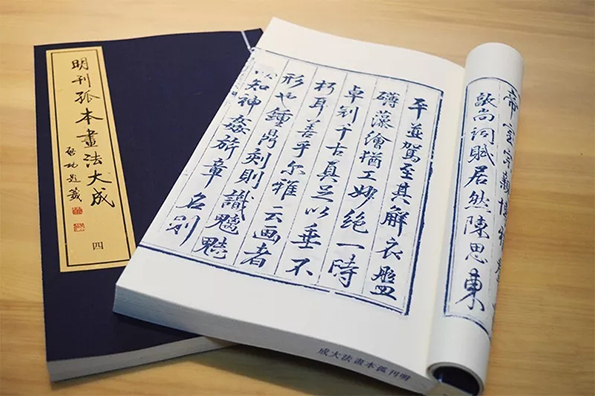 明刊孤本畫法大成
啓功題籤
四
尚詞賦居然陳思東
平並駕至其解衣盤
礴藻繪猶工妙絕一時
千古真足以垂不
朽耳善乎爾雅云画者
形也鍾鼎刻則識魑魅
以知神姦旂章名則
明刊孤本畫法大成